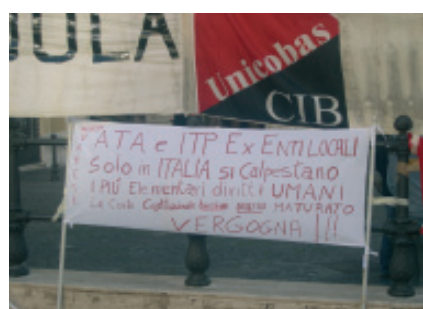 UOLA
Unicobas
CIB
ATA e ITP Ex ENTI LOCALI
Solo in ITALIA si Calpestano
I PIÚ Elementari diritti UMANI
La Corte MATURATO
VERGOGNA !!!